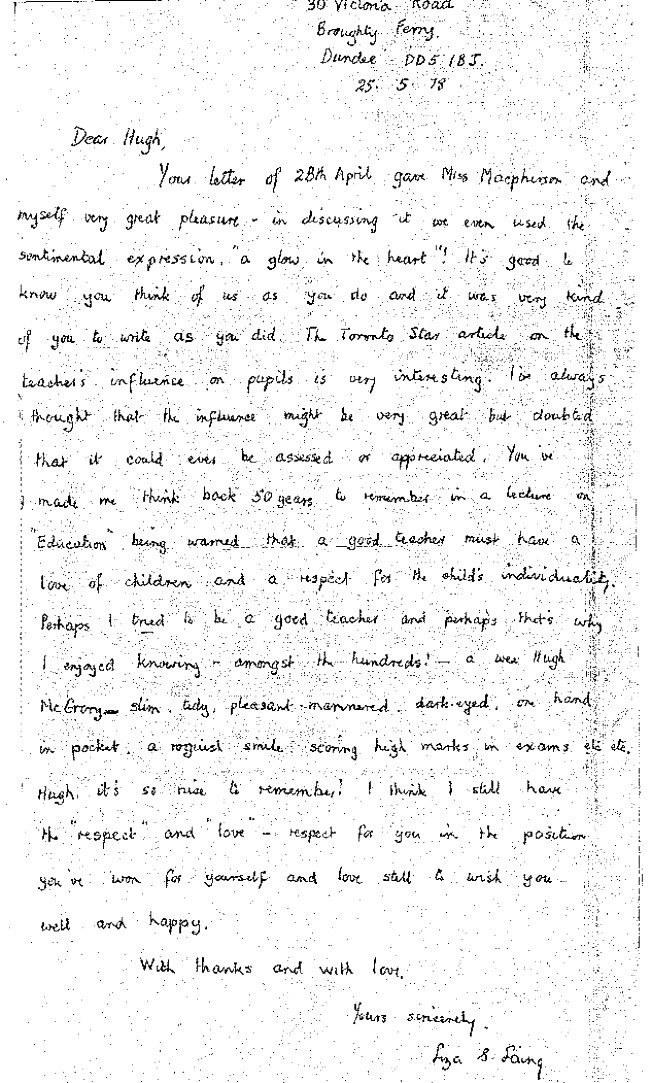 30 Victoria Road
Broughty Ferry.
Dundee DD5 1BJ.
25. 5. 78
Dear Hugh,
Your letter of 28th April gave Miss Macpherson and
myself very great pleasure - in discussing it we even used the
sentimental expression, "a glow in the heart"! It's good to
know you think of us as you do and it was very kind
of you to write as you did. The Toronto Star article on the
teacher's influence on pupils is very interesting. I've always
thought that the influence might be very great but doubted
that it could ever be assessed or appreciated. You've
made me think back 50 years to remember in a lecture on
"Education" being warned that a good teacher must have a
love of children and a respect for the child's individuality.
Perhaps I tried to be a good teacher and perhaps that's why
I enjoyed knowing - amongst the hundreds! - a wee Hugh
McGrory - slim, tidy, pleasant-mannered, dark-eyed, one hand
in pocket, a roguish smile scoring high marks in exams etc etc.
Hugh, it's so nice to remember! I think I still have
the "respect" and "love" - respect for you in the position
you've won for yourself and love still to wish you
well and happy.
With thanks and with love.
Yours sincerely.
Liza S. Laing